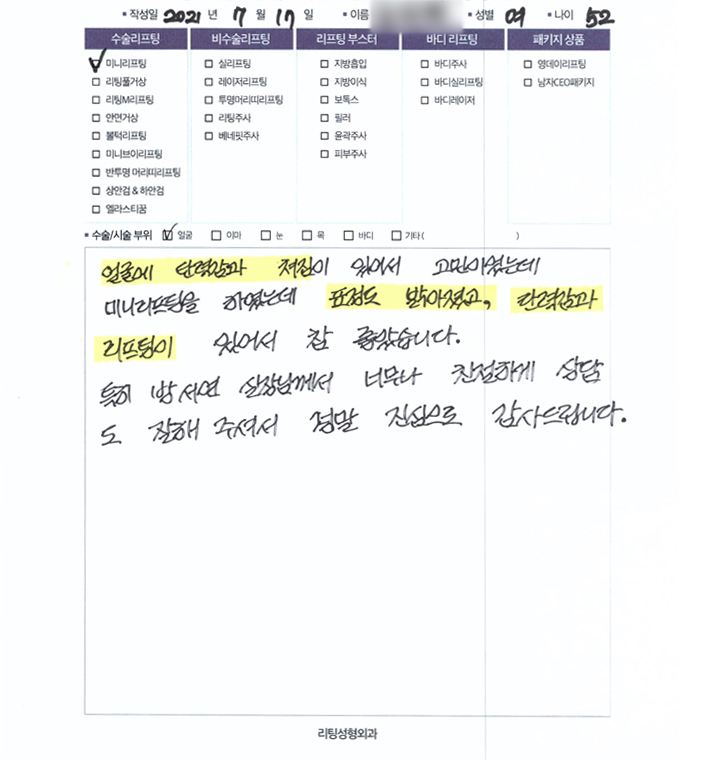 ▪ 작성일 2021 년 7 월 17 일 ▪ 이름 ▪ 성별 여 ▪ 나이 52
수술리프팅 비수술리프팅 리프팅 부스터 바디 리프팅 패키지 상품
☑ 미니리프팅 ☐ 실리프팅 ☐ 지방흡입 ☐ 바디주사 ☐ 영데이리프팅
☐ 리팅풀거상 ☐ 레이저리프팅 ☐ 지방이식 ☐ 바디실리프팅 ☐ 남자CEO패키지
☐ 리팅M리프팅 ☐ 투명머리띠리프팅 ☐ 보톡스 ☐ 바디레이저
☐ 안면거상 ☐ 리팅주사 ☐ 필러
☐ 볼턱리프팅 ☐ 베네핏주사 ☐ 윤곽주사
☐ 미니브이리프팅 ☐ 피부주사
☐ 반투명 머리띠리프팅
☐ 상안검 & 하안검
☐ 엘라스티꿈
▪ 수술/시술 부위 ☑ 얼굴 ☐ 이마 ☐ 눈 ☐ 목 ☐ 바디 ☐ 기타( )
얼굴에 탄력감과 처짐이 있어서 고민이였는데
미니리프팅을 하였는데 표정도 밝아졌고, 탄력감과
리프팅이 있어서 참 좋았습니다.
특히 방서연 실장님께서 너무나 친절하게 상담
도 잘해 주셔서 정말 진심으로 감사드립니다.
리팅성형외과